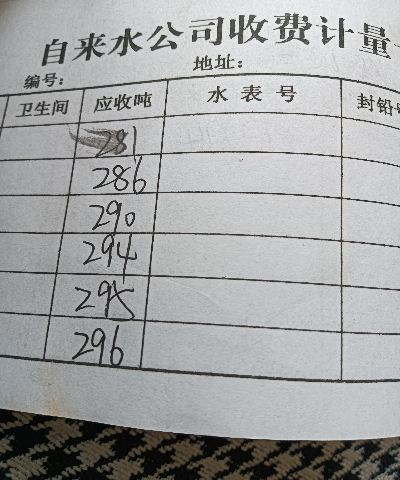 自来水公司收费计量
编号： 地址：
卫生间 应收吨 水表号 封铅
281
286
290
294
295
296